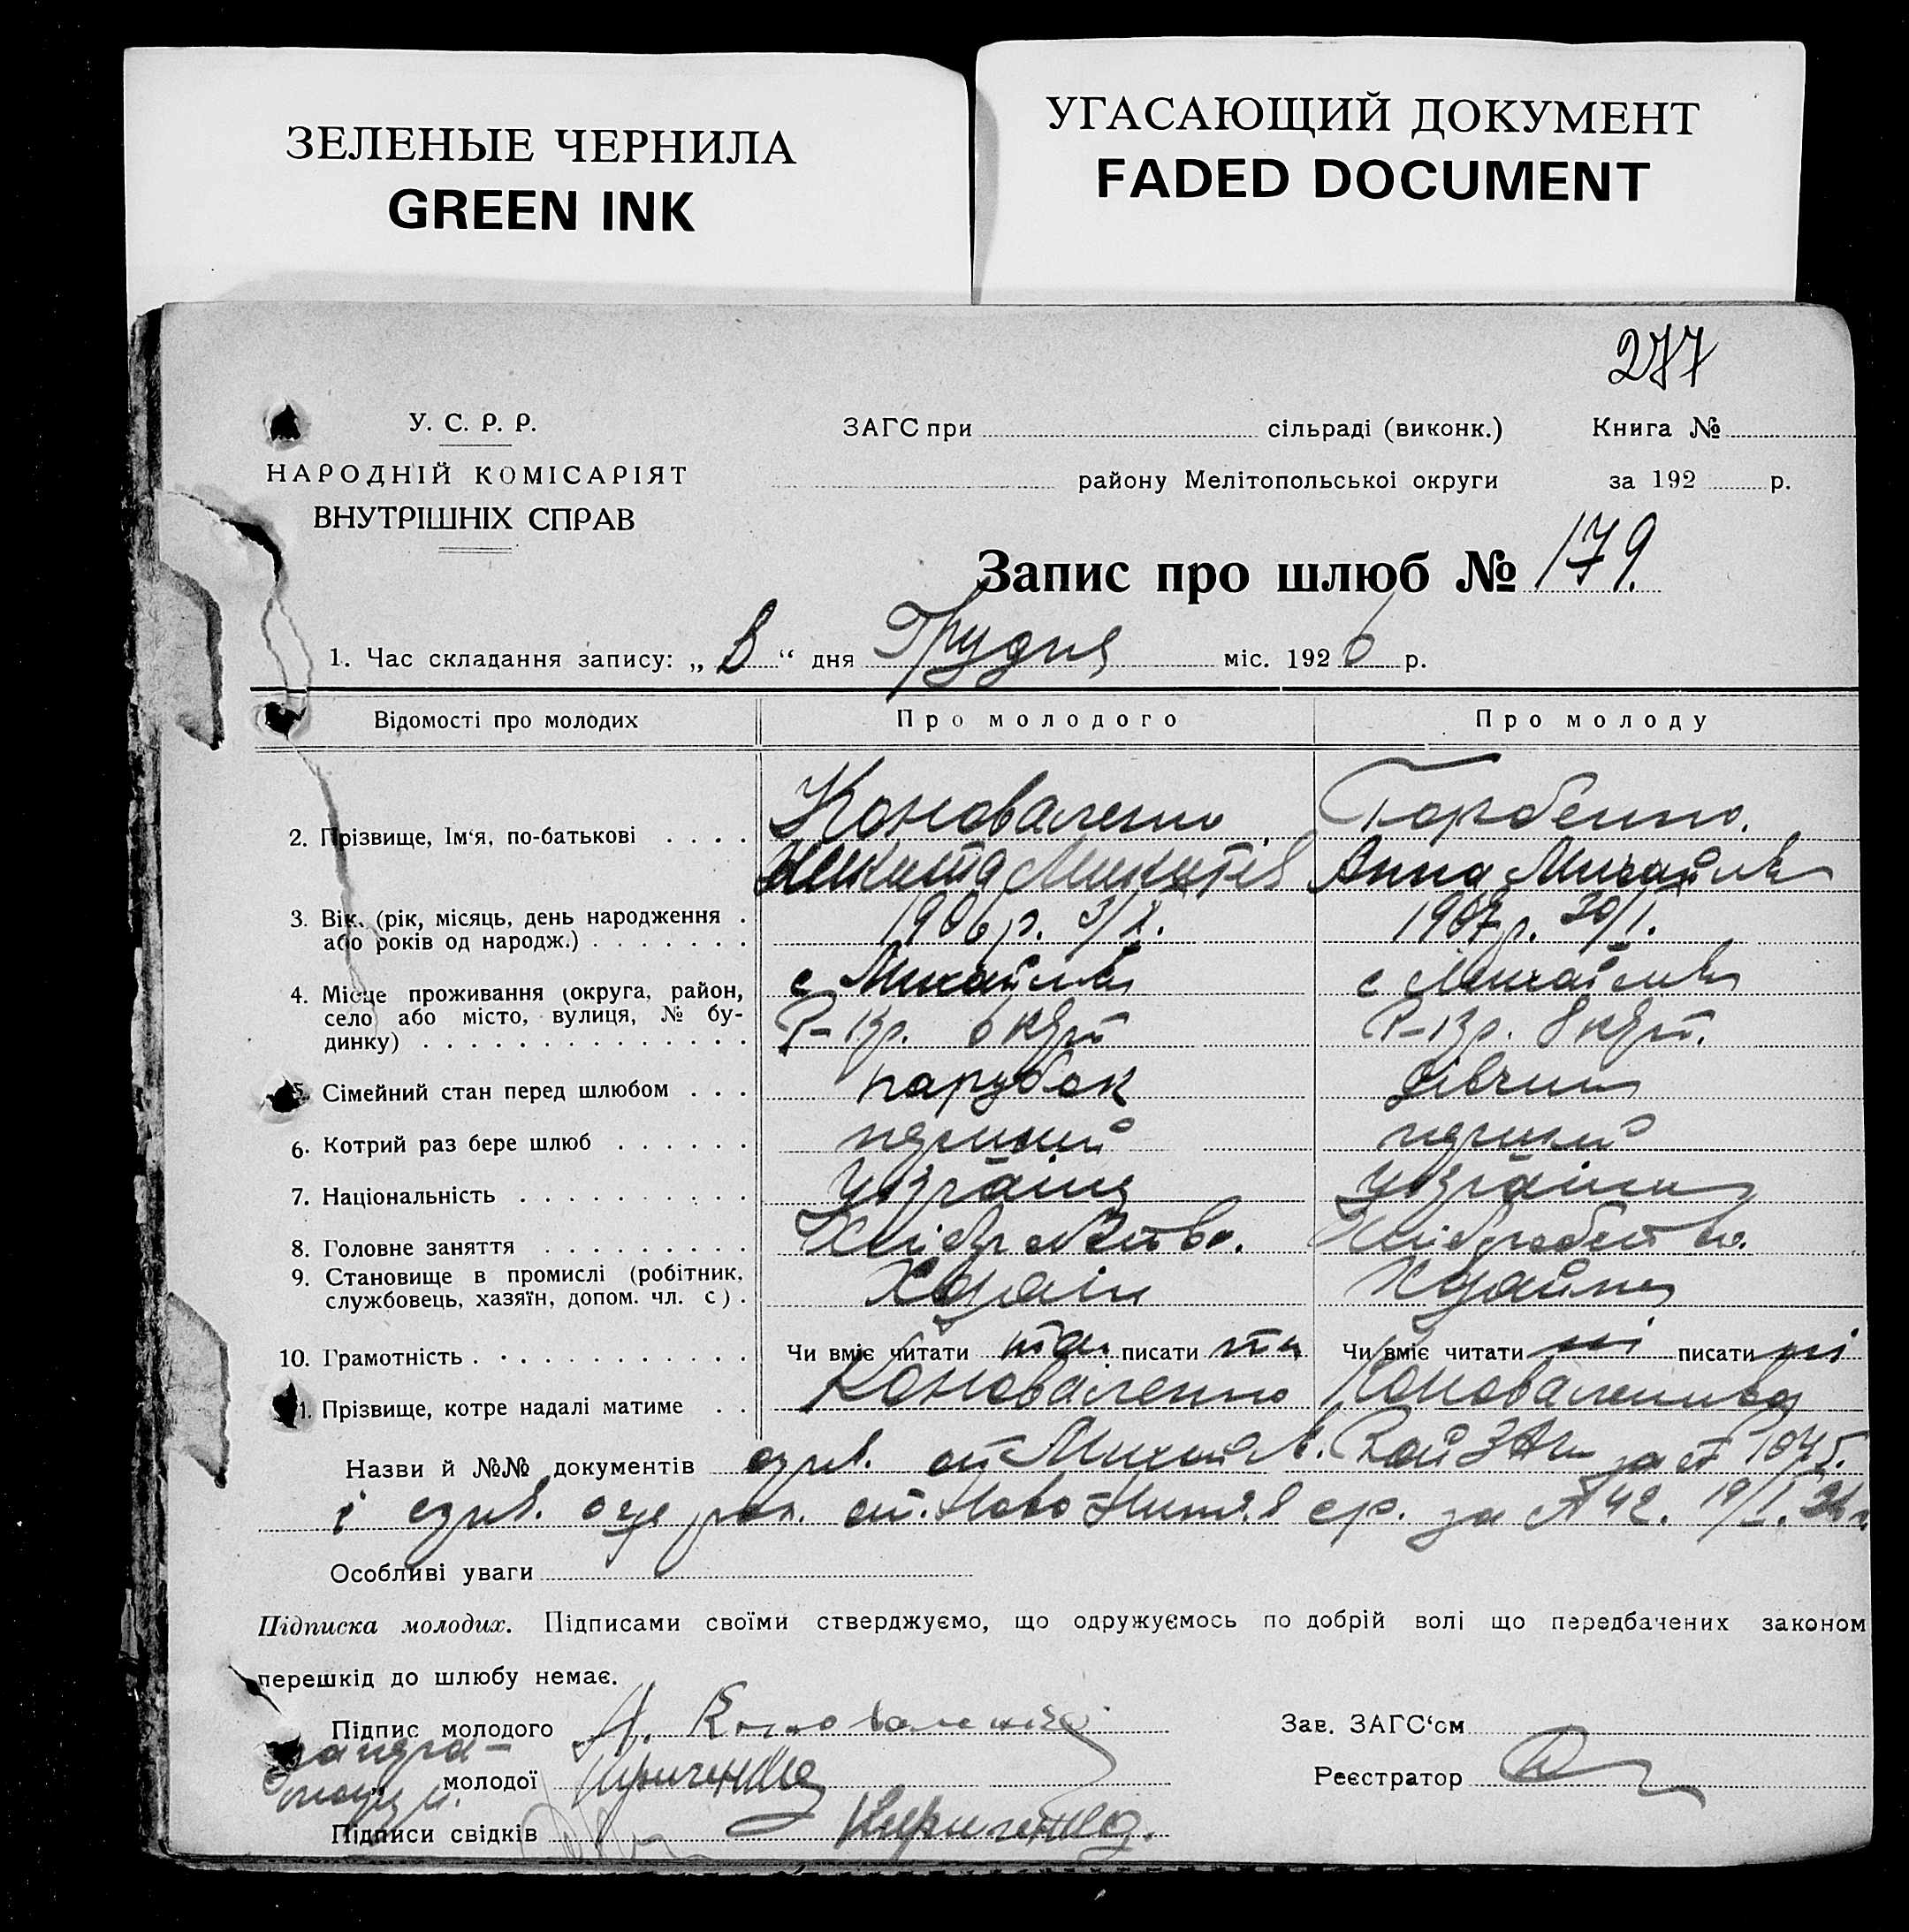 ЗЕЛЕНЫЕ ЧЕРНИЛА
GREEN INK
УГАСАЮЩИЙ ДОКУМЕНТ
FADED DOCUMENT
277
У. С. Р. Р.
НАРОДНІЙ КОМІСАРІЯТ
ВНУТРІШНІХ СПРАВ
ЗАГС при сільраді (виконк.) Книга №
району Мелітопольської округи за 192 р.
Запис про шлюб № 179.
1. Час складання запису: „ “ дня Грудня міс. 1926 р.
Відомості про молодих Про молодого Про молоду
2. Прізвище, Ім‘я, по-батькові Коноваленко Горбенко.
Микита Микитів Анна Михайлів
3. Вік. (рік, місяць, день народження 1906 р. 3/X. 1907 р. 30/I.
або років од народж.)
4. Місце проживання (округа, район, с Михайлів с Михайлів
село або місто, вулиця, № бу-
динку)
5. Сімейний стан перед шлюбом парубок дівчина
6. Котрий раз бере шлюб перший перший
7. Національність
8. Головне заняття Хліборобство. Хліборобство.
9. Становище в промислі (робітник,
службовець, хазяїн, допом. чл. с).
10. Грамотність Чи вміє читати так писати так Чи вміє читати ні писати ні
11. Прізвище, котре надалі матиме Коноваленко Коноваленкова
Назви й №№ документів за № 1075.
і за № 42. 19/I.
Особливі уваги
Підписка молодих. Підписами своїми стверджуємо, що одружуємось по добрій волі що передбачених законом
перешкід до шлюбу немає.
Підпис молодого Н. Коноваленко Зав. ЗАГС‘ом
молодої Кириченко Реєстратор
Підписи свідків Кириченко.